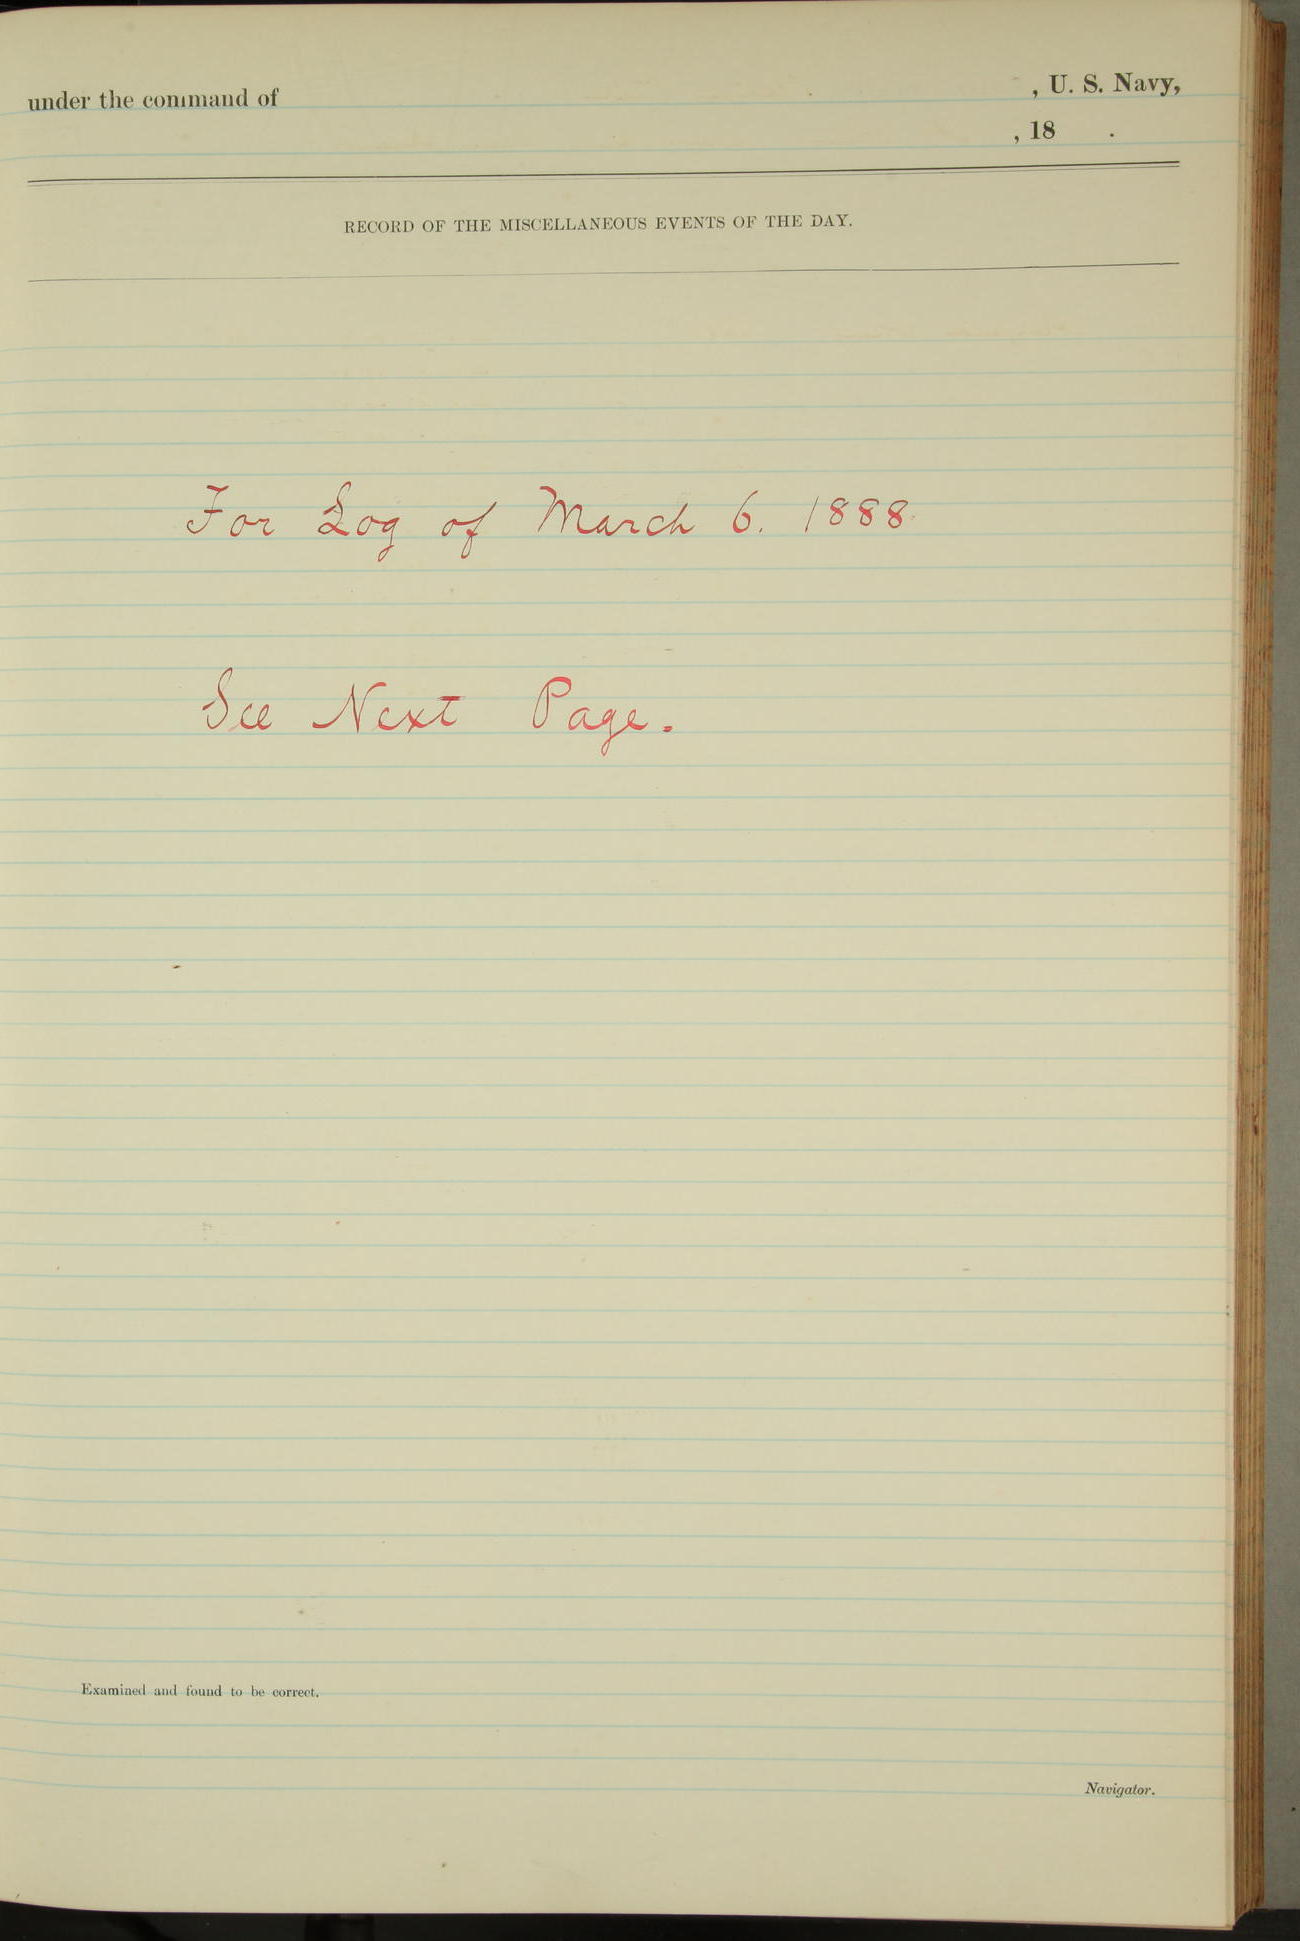 under the command of , U. S. Navy,
, 18 .
RECORD OF THE MISCELLANEOUS EVENTS OF THE DAY.
For Log of March 6. 1888.
See Next Page.
Examined and found to be correct.
Navigator.